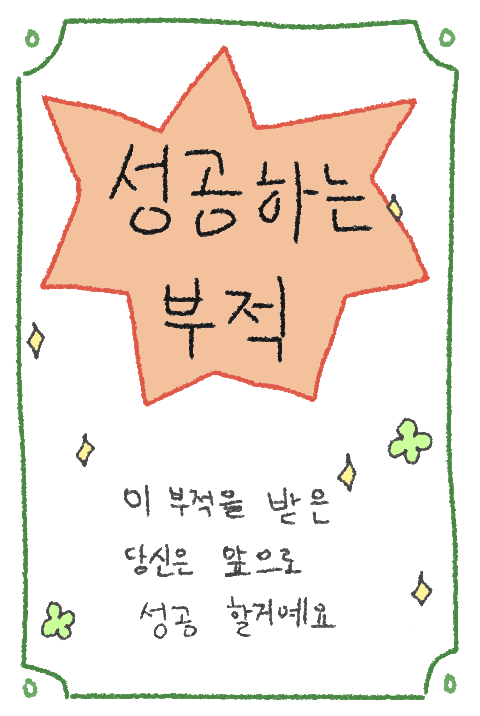 성공하는
부적
이 부적을 받은
당신은 앞으로
성공 할거예요